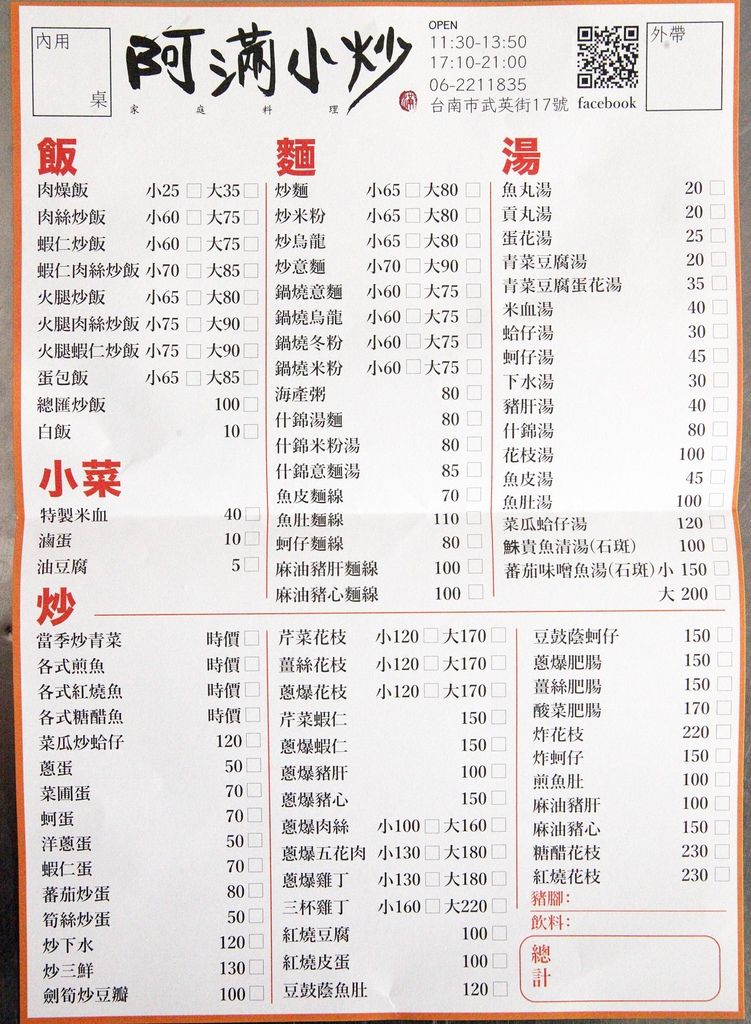 內用
桌
阿滿小炒
家庭料理
OPEN
11:30-13:50
17:10-21:00
06-2211835
台南市武英街17號
facebook
外帶
飯
肉燥飯 小25 大35
肉絲炒飯 小60 大75
蝦仁炒飯 小60 大75
蝦仁肉絲炒飯 小70 大85
火腿炒飯 小65 大80
火腿肉絲炒飯 小75 大90
火腿蝦仁炒飯 小75 大90
蛋包飯 小65 大85
總匯炒飯 100
白飯 10
小菜
特製米血 40
滷蛋 10
油豆腐 5
麵
炒麵 小65 大80
炒米粉 小65 大80
炒烏龍 小65 大80
炒意麵 小70 大90
鍋燒意麵 小60 大75
鍋燒烏龍 小60 大75
鍋燒冬粉 小60 大75
鍋燒米粉 小60 大75
海產粥 80
什錦湯麵 80
什錦米粉湯 80
什錦意麵湯 85
魚皮麵線 70
魚肚麵線 110
蚵仔麵線 80
麻油豬肝麵線 100
麻油豬心麵線 100
湯
魚丸湯 20
貢丸湯 20
蛋花湯 25
青菜豆腐湯 20
青菜豆腐蛋花湯 35
米血湯 40
蛤仔湯 30
蚵仔湯 45
下水湯 30
豬肝湯 40
什錦湯 80
花枝湯 100
魚皮湯 45
魚肚湯 100
菜瓜蛤仔湯 120
鮢貴魚清湯(石斑) 100
蕃茄味噌魚湯(石斑) 小 150
大 200
炒
當季炒青菜 時價
各式煎魚 時價
各式紅燒魚 時價
各式糖醋魚 時價
菜瓜炒蛤仔 120
蔥蛋 50
菜圃蛋 70
蚵蛋 70
洋蔥蛋 50
蝦仁蛋 70
蕃茄炒蛋 80
筍絲炒蛋 50
炒下水 120
炒三鮮 130
劍筍炒豆瓣 100
芹菜花枝 小120 大170
薑絲花枝 小120 大170
蔥爆花枝 小120 大170
芹菜蝦仁 150
蔥爆蝦仁 150
蔥爆豬肝 100
蔥爆豬心 150
蔥爆肉絲 小100 大160
蔥爆五花肉 小130 大180
蔥爆雞丁 小130 大180
三杯雞丁 小160 大220
紅燒豆腐 100
紅燒皮蛋 100
豆鼓蔭魚肚 120
豆鼓蔭蚵仔 150
蔥爆肥腸 150
薑絲肥腸 150
酸菜肥腸 170
炸花枝 220
炸蚵仔 150
煎魚肚 100
麻油豬肝 100
麻油豬心 150
糖醋花枝 230
紅燒花枝 230
豬腳：
飲料：
總計